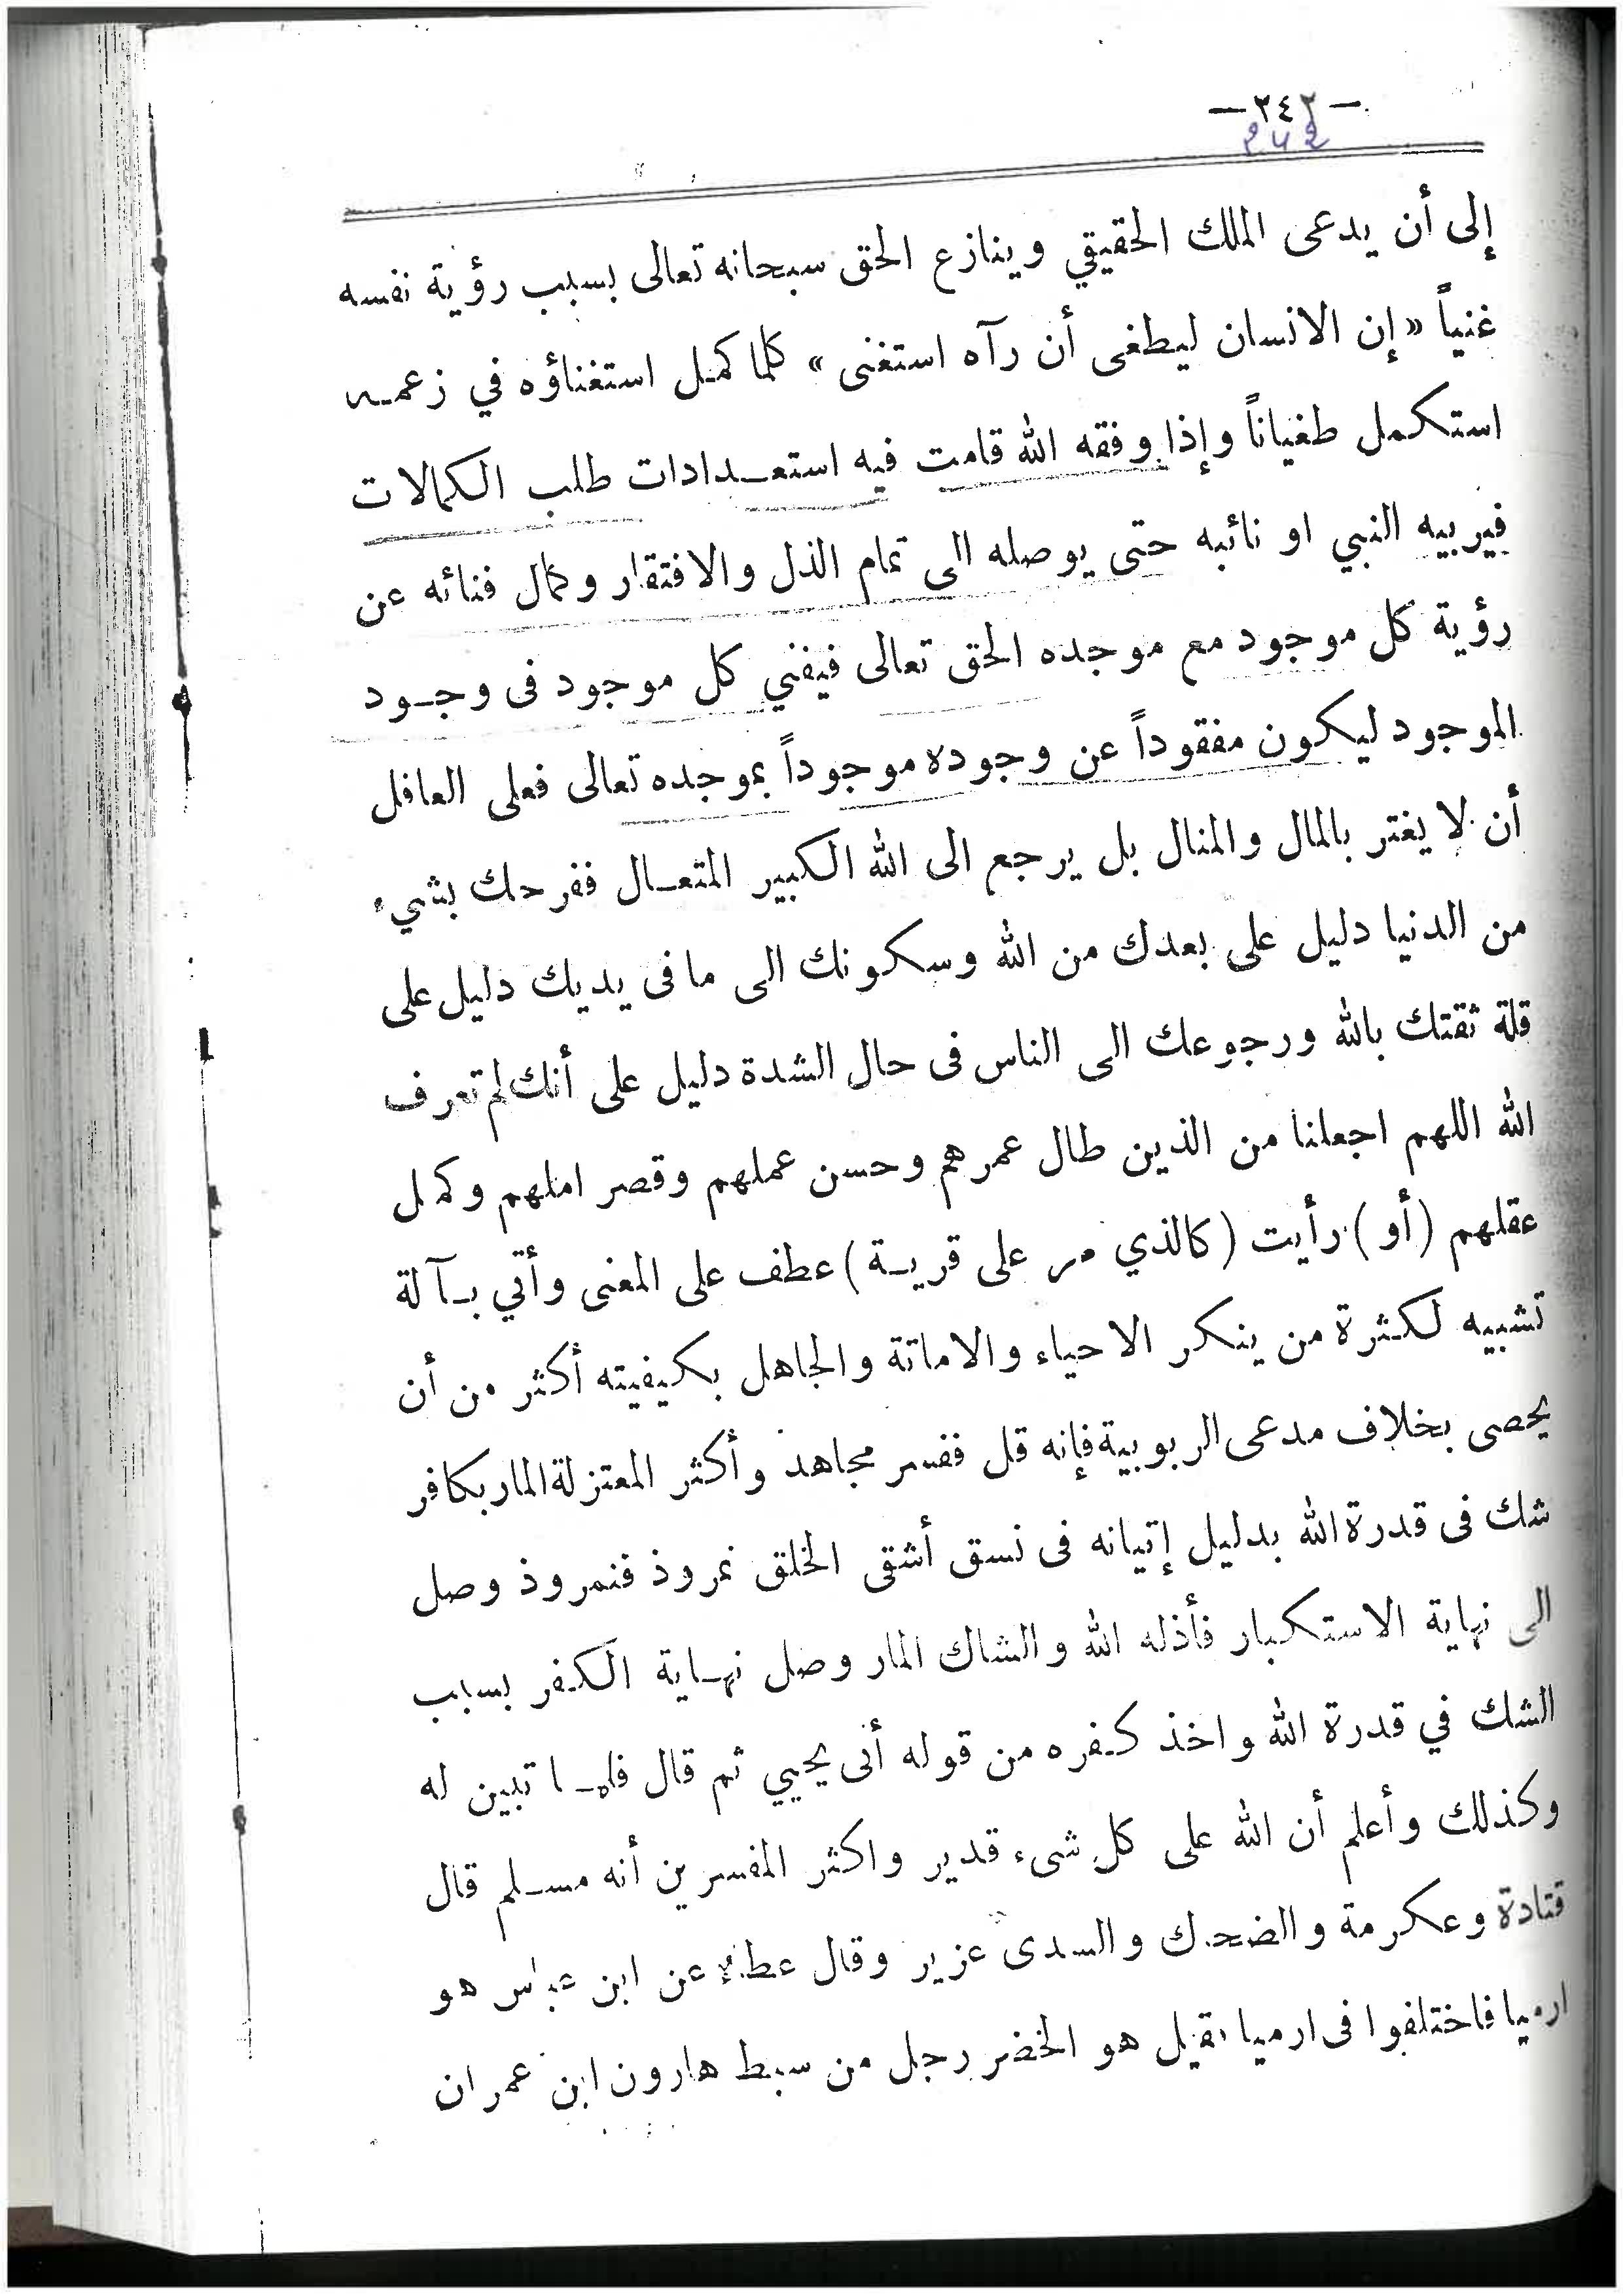 — ٢٤٢ —
242
إلى أن يدعى الملك الحقيقي وينازع الحق سبحانه تعالى بسبب رؤية نفسه
غنياً « إن الانسان ليطغى أن رآه استغنى » كلما كمل استغناؤه في زعمه
استكمل طغياناً وإذا وفقه الله قامت فيه استعدادات طلب الكمالات
فيربيه النبي او نائبه حتى يوصله الى تمام الذل والافتقار وكمال فنائه عن
رؤية كل موجود مع موجده الحق تعالى فيفني كل موجود فى وجود
الموجود ليكون مفقوداً عن وجوده موجوداً بموجده تعالى فعلى العاقل
أن لا يغتر بالمال والمنال بل يرجع الى الله الكبير المتعال ففرحك بشيء
من الدنيا دليل على بعدك من الله وسكونك الى ما فى يديك دليل على
قلة ثقتك بالله ورجوعك الى الناس فى حال الشدة دليل على أنك لم تعرف
الله اللهم اجعلنا من الذين طال عمرهم وحسن عملهم وقصر املهم وكمل
عقلهم ( أو ) رأيت ( كالذي مر على قرية ) عطف على المعنى وأتي بآلة
تشبيه لكثرة من ينكر الاحياء والاماتة والجاهل بكيفيته أكثر من أن
يحصى بخلاف مدعى الربوبية فإنه قل ففسر مجاهد وأكثر المعتزلة المار بكافر
شك فى قدرة الله بدليل إتيانه فى نسق أشقى الخلق نمروذ فنمروذ وصل
الى نهاية الاستكبار فأذله الله والشاك المار وصل نهاية الكفر بسبب
الشك في قدرة الله واخذ كفره من قوله أنى يحيي ثم قال فلما تبين له
وكذلك وأعلم أن الله على كل شىء قدير واكثر المفسرين أنه مسلم قال
قتادة وعكرمة والضحاك والسدى عزير وقال عطاء عن ابن عباس هو
ارميا فاختلفوا فى ارميا فقيل هو الخضر رجل من سبط هارون ابن عمران